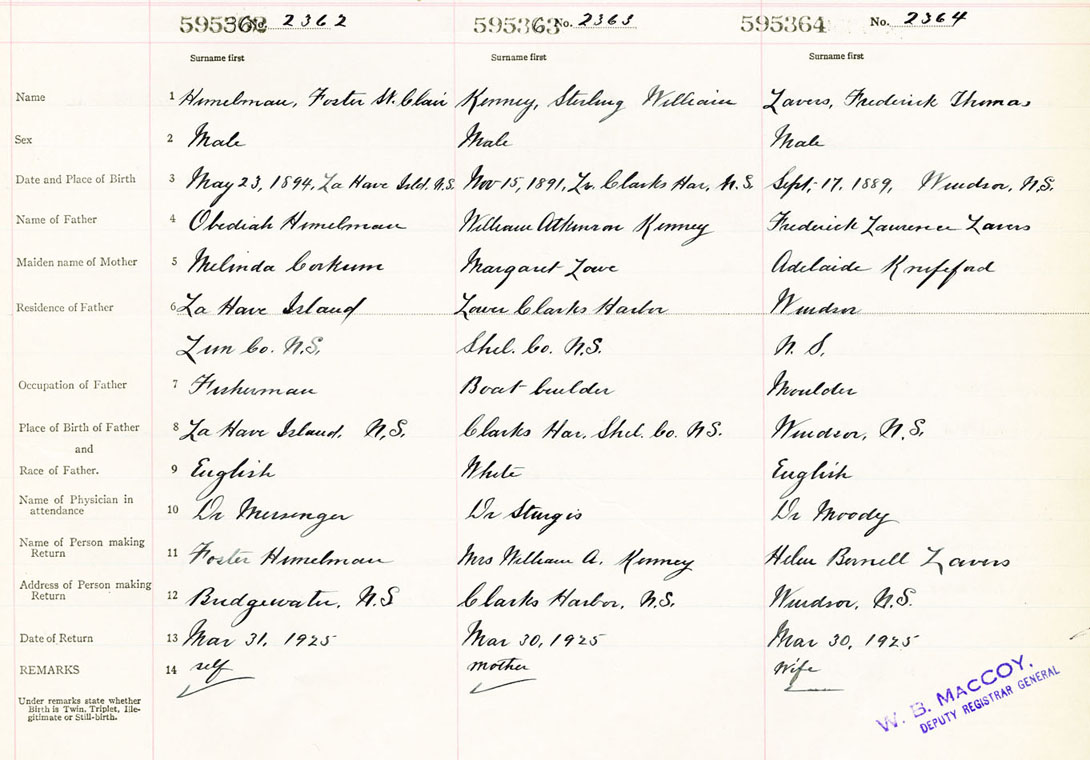 595362 No. 2362 595363 No. 2363 595364 No. 2364
Surname first Surname first Surname first
Name 1 Himelman, Foster St. Clair Kenney, Sterling William Lavers, Frederick Thomas
Sex 2 Male Male Male
Date and Place of Birth 3 May 23, 1894, La Have Isld. N.S. Nov 15, 1891, Lr. Clarks Har, N.S. Sept. 17, 1889, Windsor, N.S.
Name of Father 4 Obediah Himelman William Atkinson Kenney Frederick Laurence Lavers
Maiden name of Mother 5 Melinda Corkum Margaret Lowe Adelaide
Residence of Father 6 La Have Island Lower Clarks Harbor Windsor
Lun Co. N.S. Shel. Co. N.S. N. S.
Occupation of Father 7 Fisherman Boat builder Moulder
Place of Birth of Father 8 La Have Island, N.S. Clarks Har. Shel. Co. N.S. Windsor, N.S.
and
Race of Father. 9 English White English
Name of Physician in
attendance 10 Dr Messenger Dr Sturgis Dr Moody
Name of Person making
Return 11 Foster Himelman Mrs William A. Kenney Helen Lavers
Address of Person making
Return 12 Bridgewater, N.S Clarks Harbor, N.S. Windsor, N.S.
Date of Return 13 Mar 31, 1925 Mar 30, 1925 Mar 30, 1925
REMARKS 14 self mother wife
Under remarks state whether
Birth is Twin, Triplet, Ille-
gitimate or Still-birth.
W. B. MACCOY,
DEPUTY REGISTRAR GENERAL